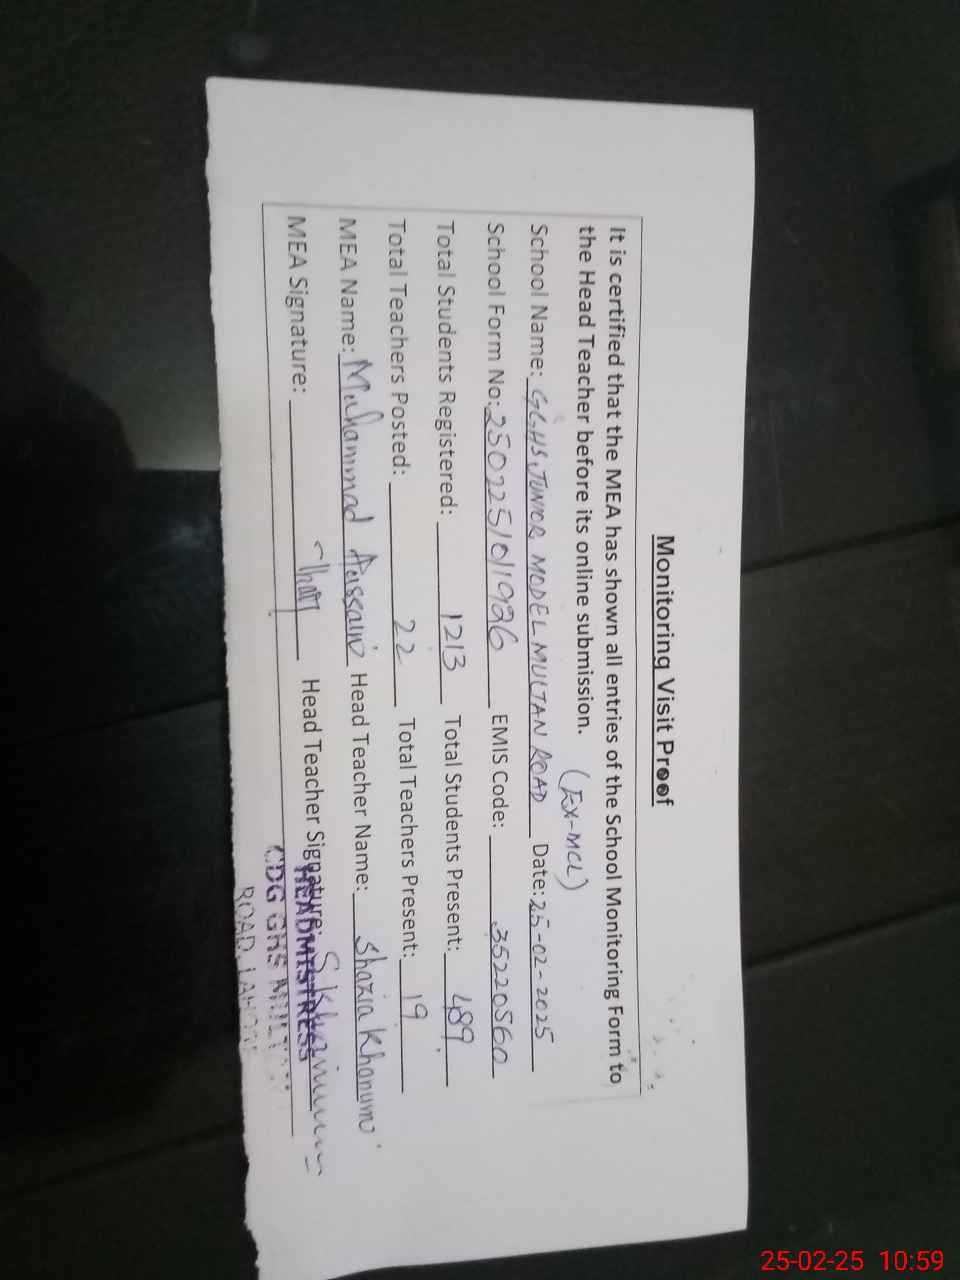 Monitoring Visit Proof
It is certified that the MEA has shown all entries of the School Monitoring Form to
the Head Teacher before its online submission. (EX-MCL)
School Name: GGHS JUNIOR MODEL MULTAN ROAD Date: 25-02-2025
School Form No: 25022510/1926 EMIS Code: 35220560
Total Students Registered: 1213 Total Students Present: 489
Total Teachers Posted: 22 Total Teachers Present: 19
MEA Name: Muhammad Hussain Head Teacher Name: Shazia Khanum
MEA Signature: Head Teacher Signature:
HEADMISTRESS
CDG GHS MULTAN
ROAD, LAHORE
25-02-25 10:59